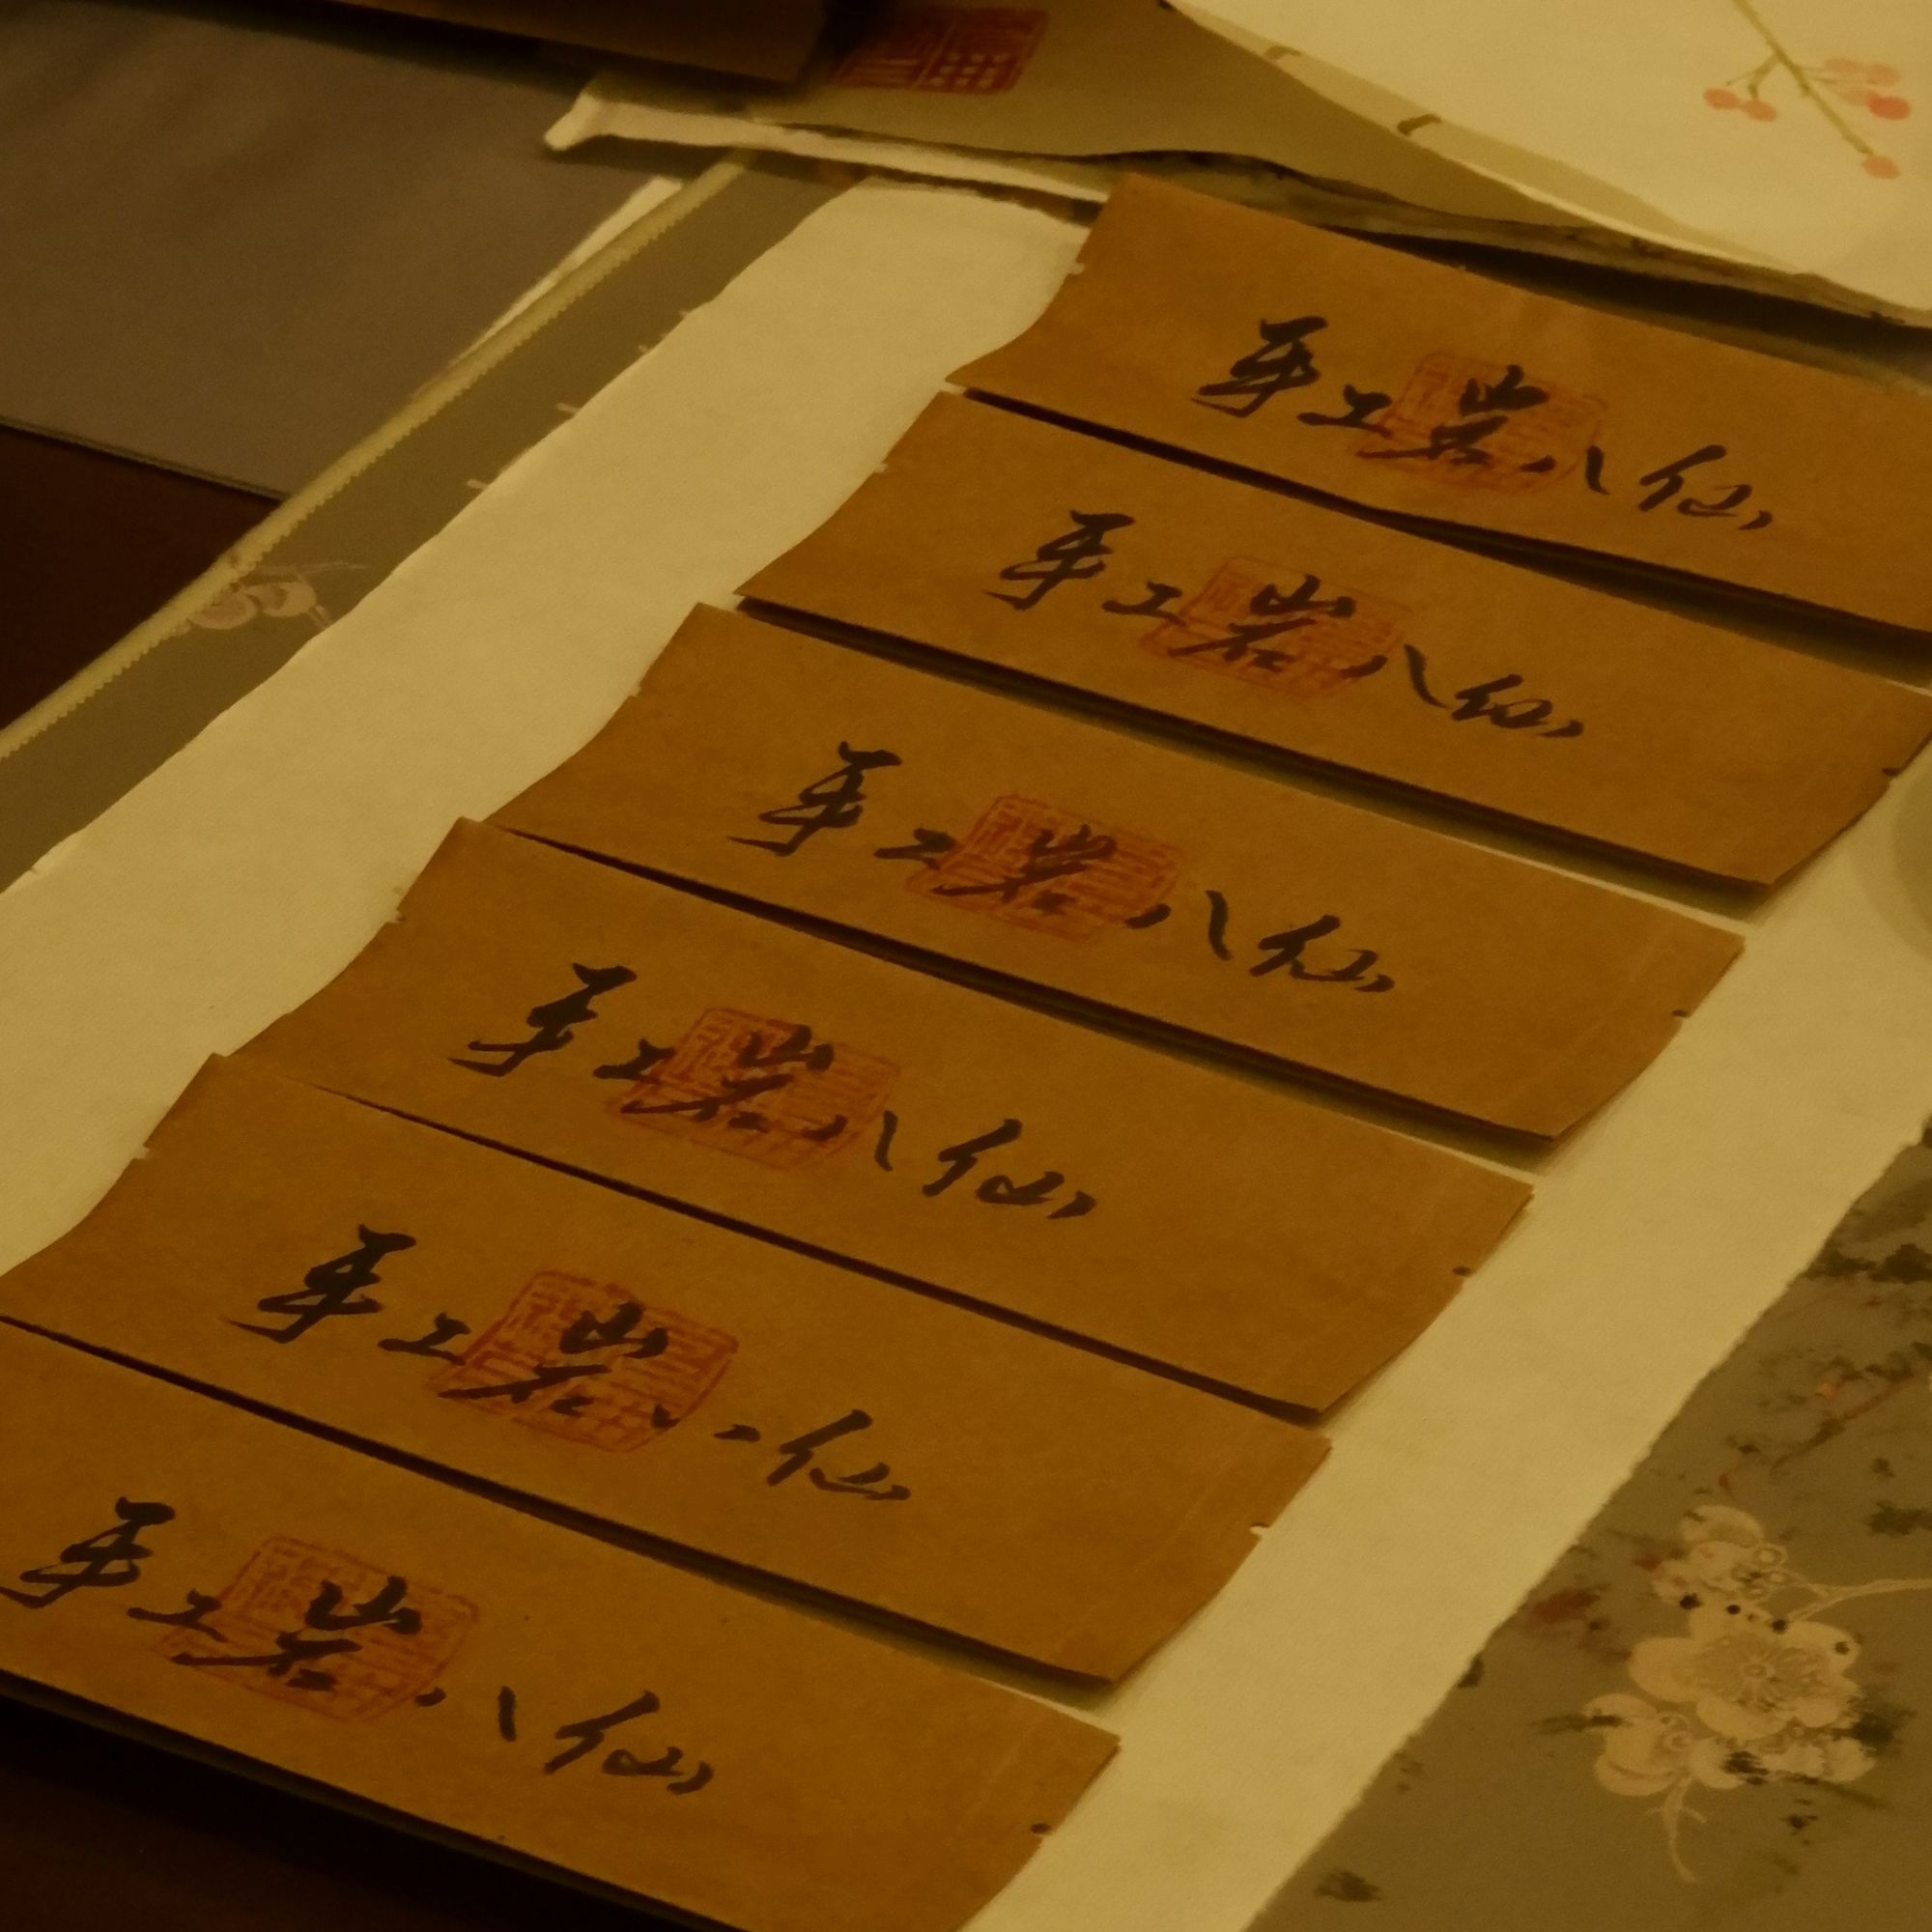 手工岩八仙
手工岩八仙
手工岩八仙
手工岩八仙
手工岩八仙
手工岩八仙